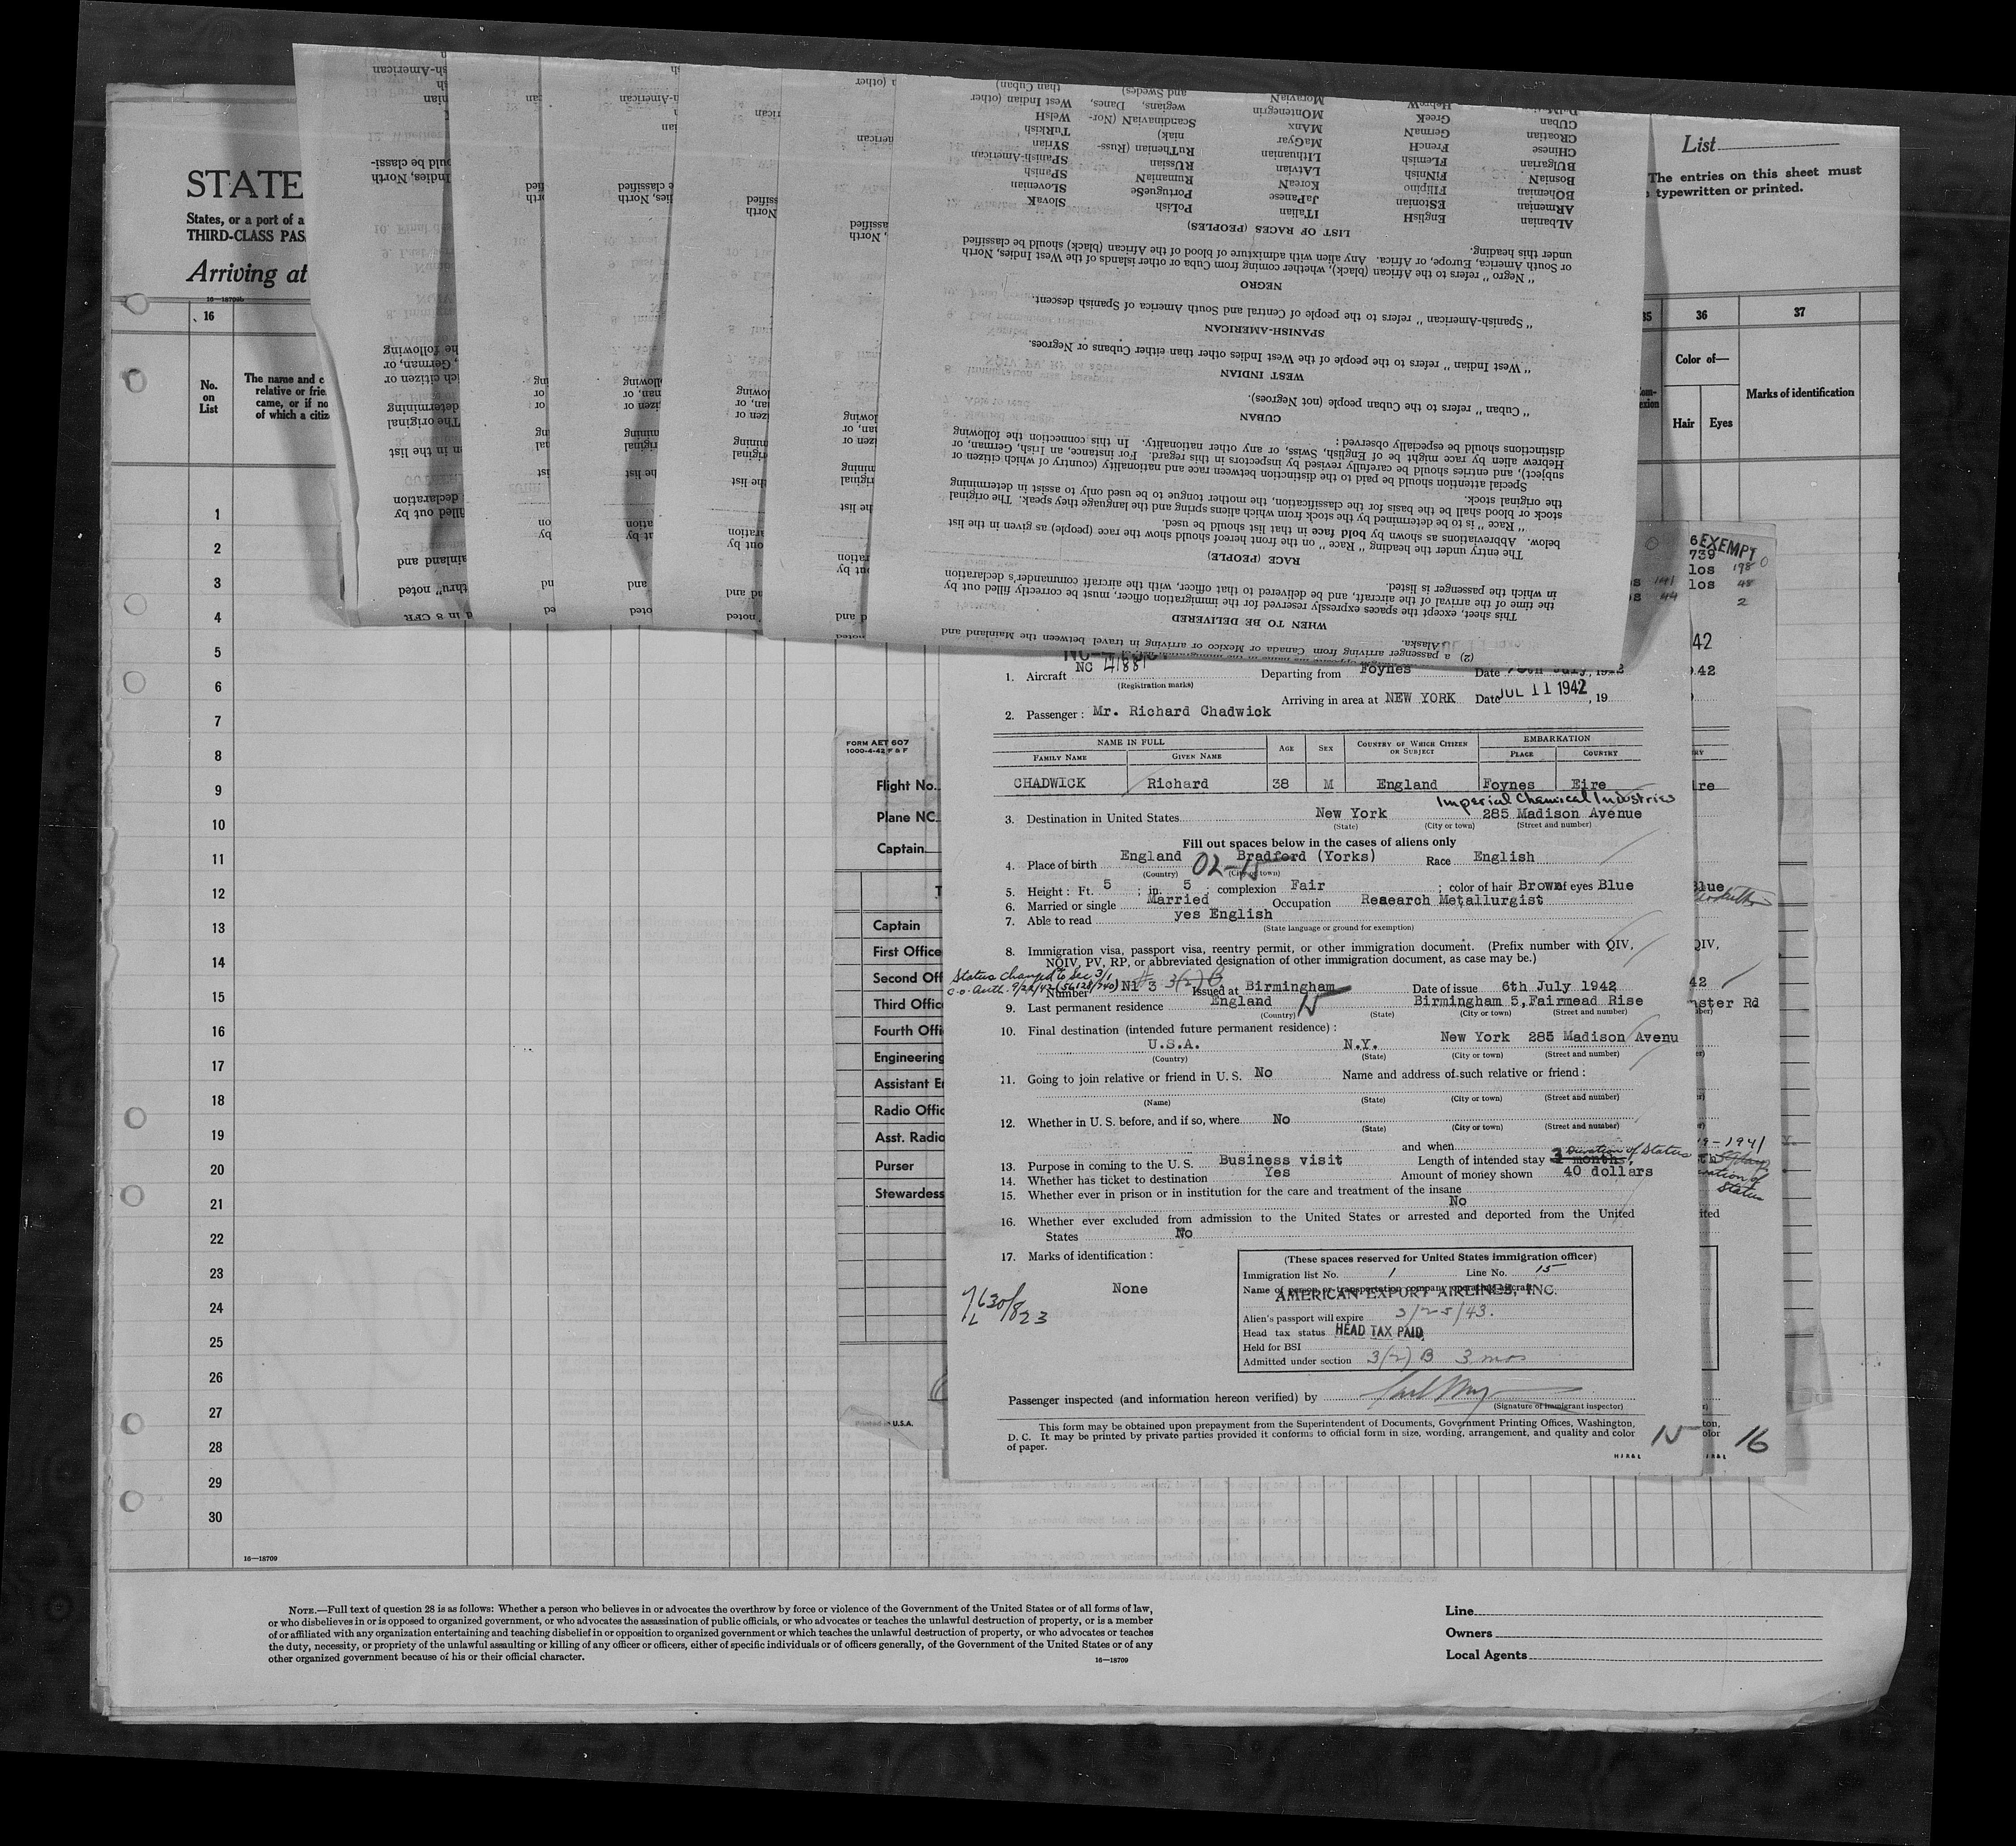 STATE
States, or a port of a
THIRD-CLASS PAS
Arriving at
List
The entries on this sheet must
typewritten or printed.
16-18709b
16
36
37
No.
on
List
The name and c
relative or frie
came, or if no
of which a citiz
Color of—
Hair Eyes
Marks of identification
1
2
3
4
5
6
7
8
9
10
11
12
13
14
15
16
17
18
19
20
21
22
23
24
25
26
27
28
29
30
16—18709
FORM AET 607
1000-4-42 F & F
Flight No.
Plane NC
Captain
Captain
First Office
Second Off
Third Offic
Fourth Offi
Engineering
Assistant E
Radio Offic
Asst. Radio
Purser
Stewardess
Printed in U.S.A.
(2) a passenger arriving from Canada or Mexico or arriving in travel between the Mainland and
Alaska.
WHEN TO BE DELIVERED
This sheet, except the spaces expressly reserved for the immigration officer, must be correctly filled out by
the time of the arrival of the aircraft, and be delivered to that officer, with the aircraft commander's declaration
in which the passenger is listed.
RACE (PEOPLE)
The entry under the heading "Race" on the front hereof should show the race (people) as given in the list
below. Abbreviations as shown by bold face in that list should be used.
"Race" is to be determined by the stock from which aliens spring and the language they speak. The original
stock or blood shall be the basis for the classification, the mother tongue to be used only to assist in determining
the original stock.
Special attention should be paid to the distinction between race and nationality (country of which citizen or
subject), and entries should be carefully revised by inspectors in this regard. For instance, an Irish, German, or
Hebrew alien by race might be of English, Swiss, or any other nationality. In this connection the following
distinctions should be especially observed:
CUBAN
"Cuban" refers to the Cuban people (not Negroes).
WEST INDIAN
"West Indian" refers to the people of the West Indies other than either Cubans or Negroes.
SPANISH-AMERICAN
"Spanish-American" refers to the people of Central and South America of Spanish descent.
NEGRO
"Negro" refers to the African (black), whether coming from Cuba or other islands of the West Indies, North
or South America, Europe, or Africa. Any alien with admixture of blood of the African (black) should be classified
under this heading.
LIST OF RACES (PEOPLES)
ALbanian EnglisH ITalian PoLish SlovaK
ARmenian EStonian JaPanese PortugueSe SLovenian
BOhemian FIlipino KoreaN RumaniaN SPanish
BosniaN FiNnish LAtvian RUssian SPanish-American
BUlgarian FLemish LIthuanian RuThenian (Russ- SYrian
CHinese FrencH MaGyar niak) TuRkish
CRoatian GermaN MAnx ScandinaviaN (Nor- WelsH
CUban GreeK MOntenegrin wegians, Danes, West Indian (other
HebreW MoraviaN and Swedes) than Cuban)
EXEMPT
1. Aircraft NC 41881 Departing from Foynes Date
(Registration marks)
Arriving in area at NEW YORK Date JUL 11 1942, 19
2. Passenger: Mr. Richard Chadwick
NAME IN FULL AGE SEX COUNTRY OF WHICH CITIZEN OR SUBJECT EMBARKATION
FAMILY NAME GIVEN NAME PLACE COUNTRY
CHADWICK Richard 38 M England Foynes Eire
Imperial Chemical Industries
3. Destination in United States New York 285 Madison Avenue
(State) (City or town) (Street and number)
Fill out spaces below in the cases of aliens only
4. Place of birth England Bradford (Yorks) Race English
(Country) 02-15 (City or town)
5. Height: Ft. 5 ; in. 5 ; complexion Fair ; color of hair Brown of eyes Blue
6. Married or single Married Occupation Reaearch Metallurgist
7. Able to read yes English
(State language or ground for exemption)
8. Immigration visa, passport visa, reentry permit, or other immigration document. (Prefix number with QIV,
NQIV, PV, RP, or abbreviated designation of other immigration document, as case may be.)
Status changed to Sec 3/1
c.o. Auth. 9/22/42 (56128/740)
Number Ni 3 3(2) B Issued at Birmingham Date of issue 6th July 1942
9. Last permanent residence England Birmingham 5, Fairmead Rise
(Country) (State) (City or town) (Street and number)
10. Final destination (intended future permanent residence):
U.S.A. N.Y. New York 285 Madison Avenu
(Country) (State) (City or town) (Street and number)
11. Going to join relative or friend in U. S. No Name and address of such relative or friend:
(Name) (State) (City or town) (Street and number)
12. Whether in U. S. before, and if so, where No
(State) (City or town) (Street and number)
and when
13. Purpose in coming to the U. S. Business visit Length of intended stay 3 months, Duration of Status
14. Whether has ticket to destination Yes Amount of money shown 40 dollars
15. Whether ever in prison or in institution for the care and treatment of the insane
No
16. Whether ever excluded from admission to the United States or arrested and deported from the United
States No
17. Marks of identification:
None
(These spaces reserved for United States immigration officer)
Immigration list No. 1 Line No. 15
Name of person or transportation company operating aircraft
AMERICAN EXPORT AIRLINES, INC.
Alien's passport will expire 3/25/43.
Head tax status HEAD TAX PAID
Held for BSI
Admitted under section 3(2) B 3 mos
Passenger inspected (and information hereon verified) by
(Signature of immigrant inspector)
This form may be obtained upon prepayment from the Superintendent of Documents, Government Printing Offices, Washington,
D. C. It may be printed by private parties provided it conforms to official form in size, wording, arrangement, and quality and color
of paper.
15
16
NOTE.—Full text of question 28 is as follows: Whether a person who believes in or advocates the overthrow by force or violence of the Government of the United States or of all forms of law,
or who disbelieves in or is opposed to organized government, or who advocates the assassination of public officials, or who advocates or teaches the unlawful destruction of property, or is a member
of or affiliated with any organization entertaining and teaching disbelief in or opposition to organized government or which teaches the unlawful destruction of property, or who advocates or teaches
the duty, necessity, or propriety of the unlawful assaulting or killing of any officer or officers, either of specific individuals or of officers generally, of the Government of the United States or of any
other organized government because of his or their official character.
16—18709
Line
Owners
Local Agents